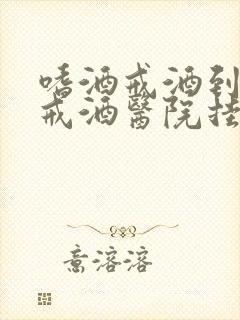 嗜酒戒酒到
戒酒醫院挂
意溶溶